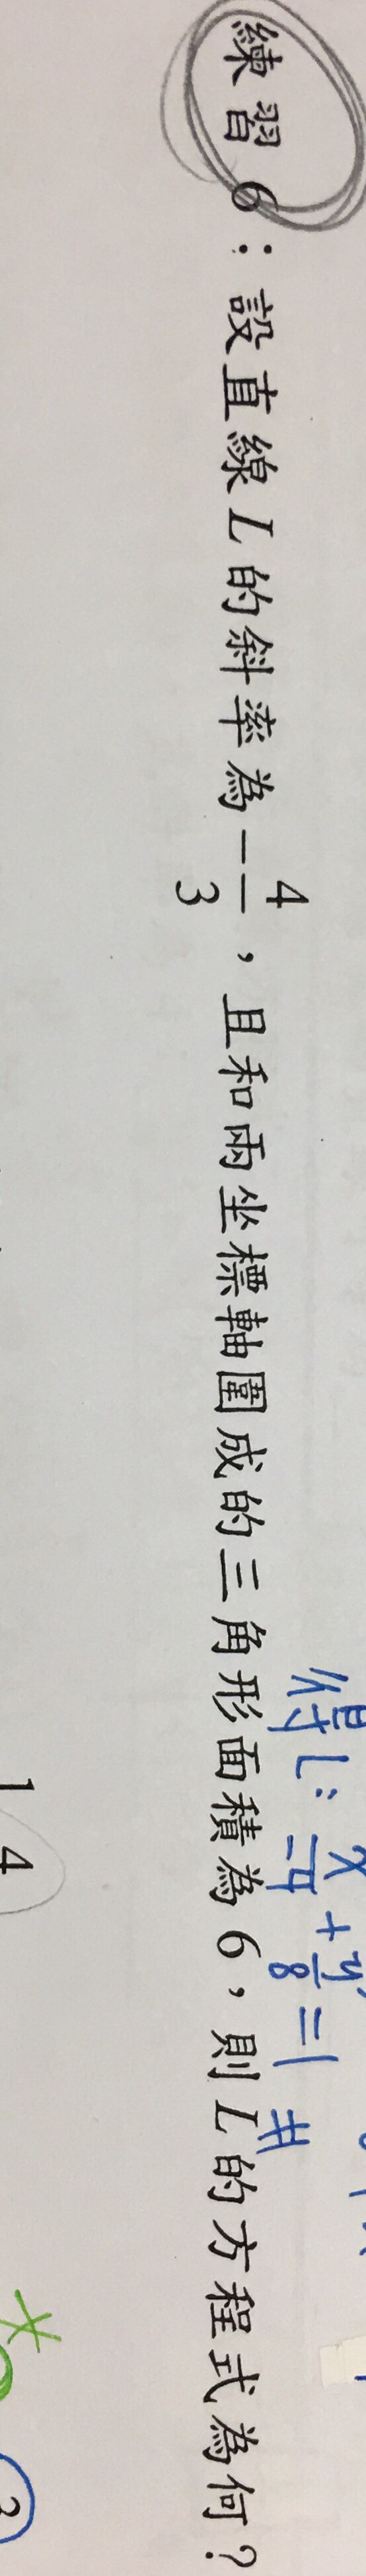 得L: x/-4 + y/8 = 1 #
練習 6：設直線 L 的斜率為 -4/3，且和兩坐標軸圍成的三角形面積為 6，則 L 的方程式為何？
1 4